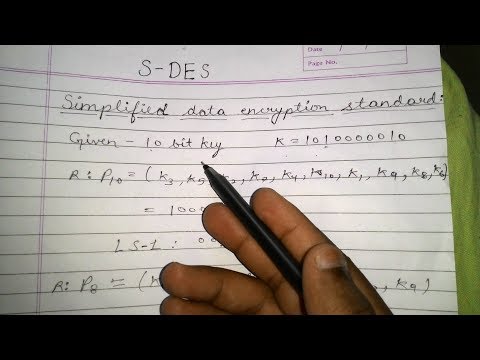 Date
Page No.
S-DES
Simplified data encryption standard:
Given - 10 bit key K = 1010000010
R: P10 = (k3, k5, k2, k7, k4, k10, k1, k9, k8, k6)
= 100
LS-1 : 00
R: P8 = (k , k9)